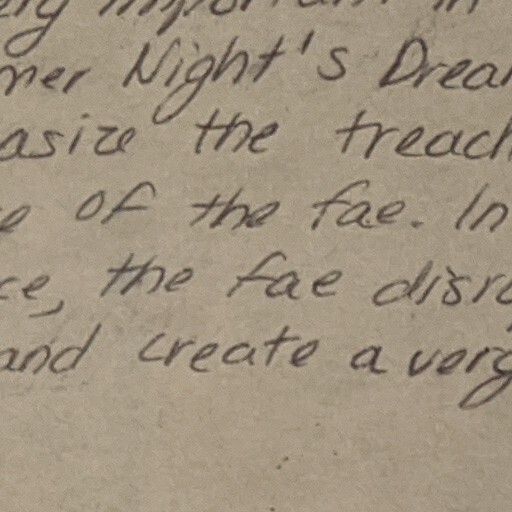 important in
mer Night's Drea
asize the treach
e of the fae. In
ce, the fae disr
and create a very